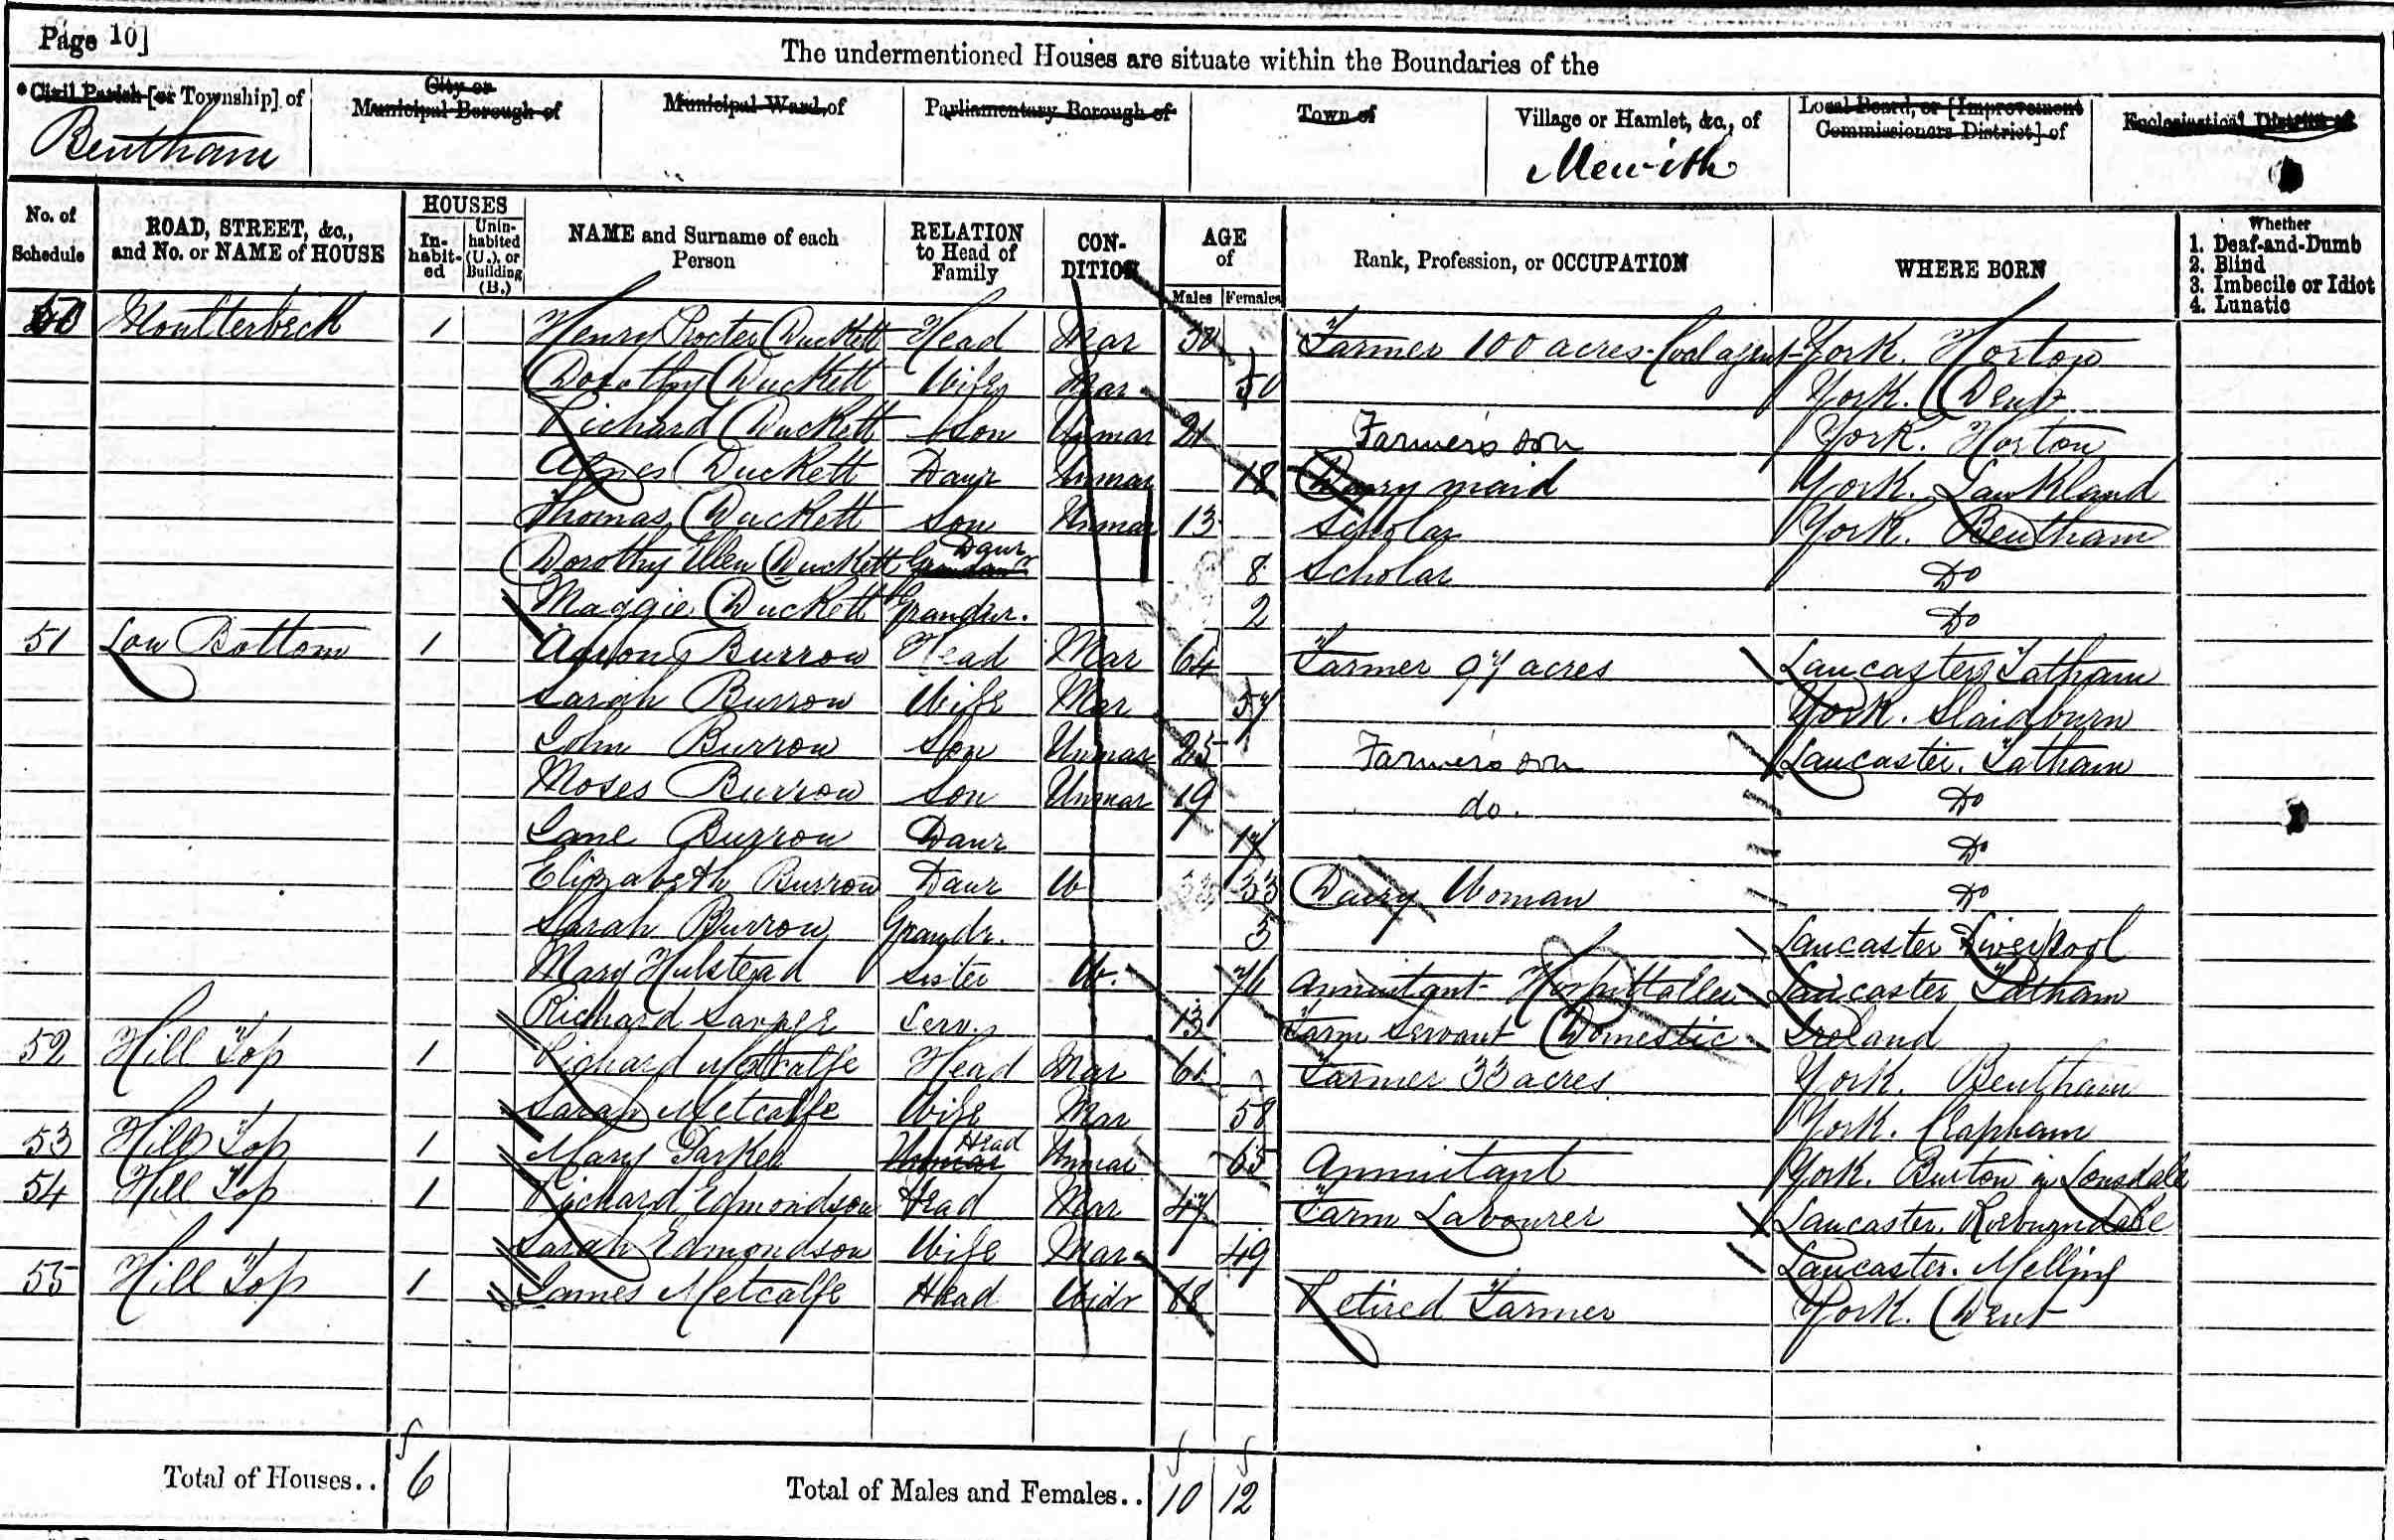 Page 10]
The undermentioned Houses are situate within the Boundaries of the
Civil Parish [or Township] of
City or Municipal Borough of
Municipal Ward of
Parliamentary Borough of
Town of
Village or Hamlet, &c., of
Local Board, or [Improvement Commissioners District] of
Ecclesiastical District of
Bentham
Mewith
No. of Schedule
ROAD, STREET, &c., and No. or NAME of HOUSE
HOUSES
In-habit-ed
Unin-habited (U.), or Building (B.)
NAME and Surname of each Person
RELATION to Head of Family
CON-DITION
AGE of
Males
Females
Rank, Profession, or OCCUPATION
WHERE BORN
Whether
1. Deaf-and-Dumb
2. Blind
3. Imbecile or Idiot
4. Lunatic
50 Moulterbeck 1 Henry Procter Duckett Head Mar 50 Farmer 100 acres Coal agent York. Horton
Dorothy Duckett Wife Mar 50 York. Dent
Richard Duckett Son Unmar 21 Farmer's son York. Horton
Agnes Duckett Daur Unmar 18 Dairy maid York. Lawkland
Thomas Duckett Son Unmar 13 Scholar York. Bentham
Dorothy Ellen Duckett Daur 8 Scholar Do
Maggie Duckett Grandr. 2 Do
51 Low Bottom 1 Burrow Head Mar 64 Farmer 97 acres Lancaster Tatham
Sarah Burrow Wife Mar 57 York. Slaidburn
John Burrow Son Unmar 25 Farmer's son Lancaster. Tatham
Moses Burrow Son Unmar 19 do. Do
Jane Burrow Daur 17 Do
Elizabeth Burrow Daur W 33 Dairy Woman Do
Sarah Burrow Grandr. 3 Lancaster Liverpool
Mary Hulstead Sister W. 76 Annuitant Lancaster Tatham
Richard Serv. 13 Farm Servant Domestic Ireland
52 Hill Top 1 Richard Metcalfe Head Mar 61 Farmer 33 acres York. Bentham
Sarah Metcalfe Wife Mar 58 York. Clapham
53 Hill Top 1 Mary Parker Head Unmar 65 Annuitant York. Burton in Lonsdale
54 Hill Top 1 Richard Edmondson Head Mar 47 Farm Labourer Lancaster. Roeburndale
Sarah Edmondson Wife Mar 49 Lancaster. Melling
55 Hill Top 1 James Metcalfe Head Widr 88 Retired Farmer York. Dent
Total of Houses.. 6
Total of Males and Females.. 10 12